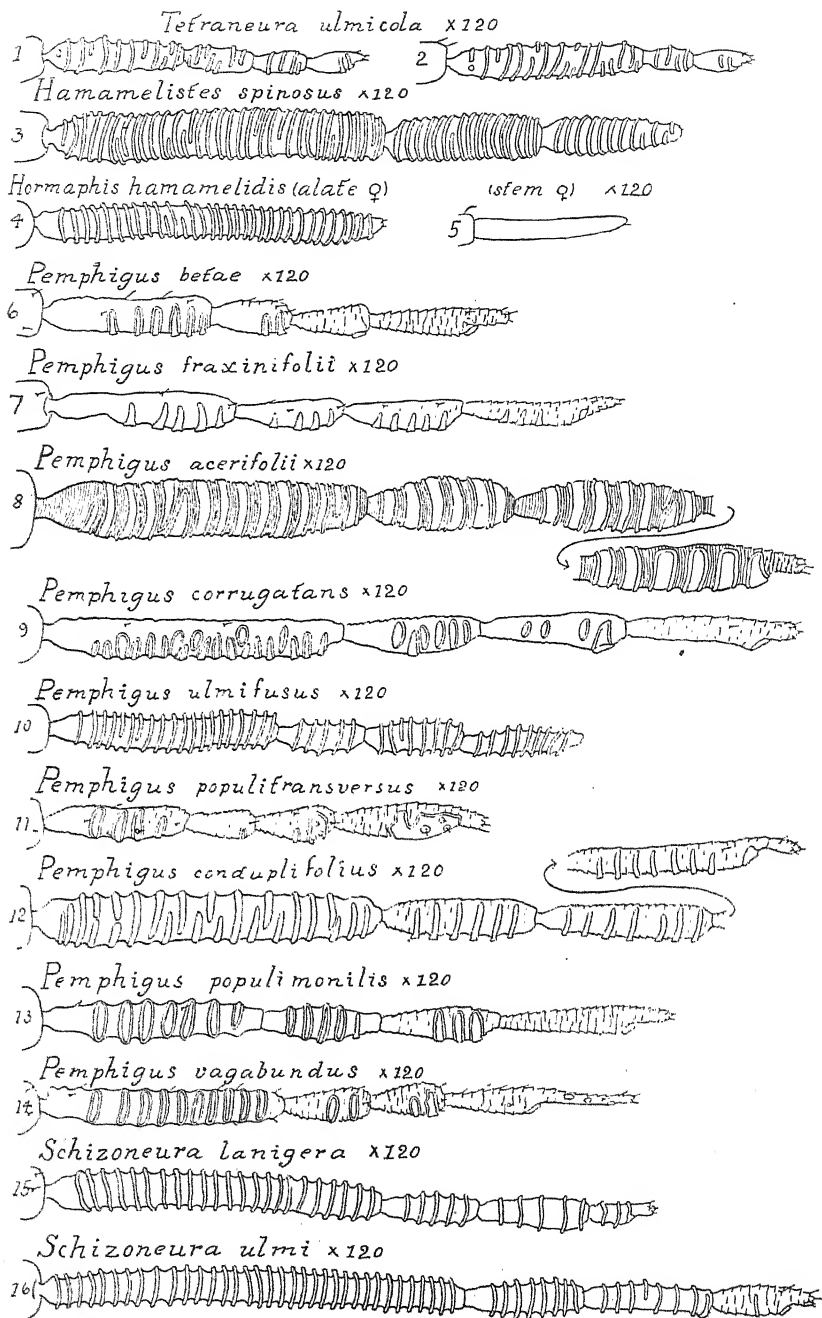 Tetraneura ulmicola ×120
1 2
Hamamelistes spinosus ×120
3
Hormaphis hamamelidis (alate ♀) (stem ♀) ×120
4 5
Pemphigus betae ×120
6
Pemphigus fraxinifolii ×120
7
Pemphigus acerifolii ×120
8
Pemphigus corrugatans ×120
9
Pemphigus ulmifusus ×120
10
Pemphigus populitransversus ×120
11
Pemphigus conduplifolius ×120
12
Pemphigus populimonilis ×120
13
Pemphigus vagabundus ×120
14
Schizoneura lanigera ×120
15
Schizoneura ulmi ×120
16